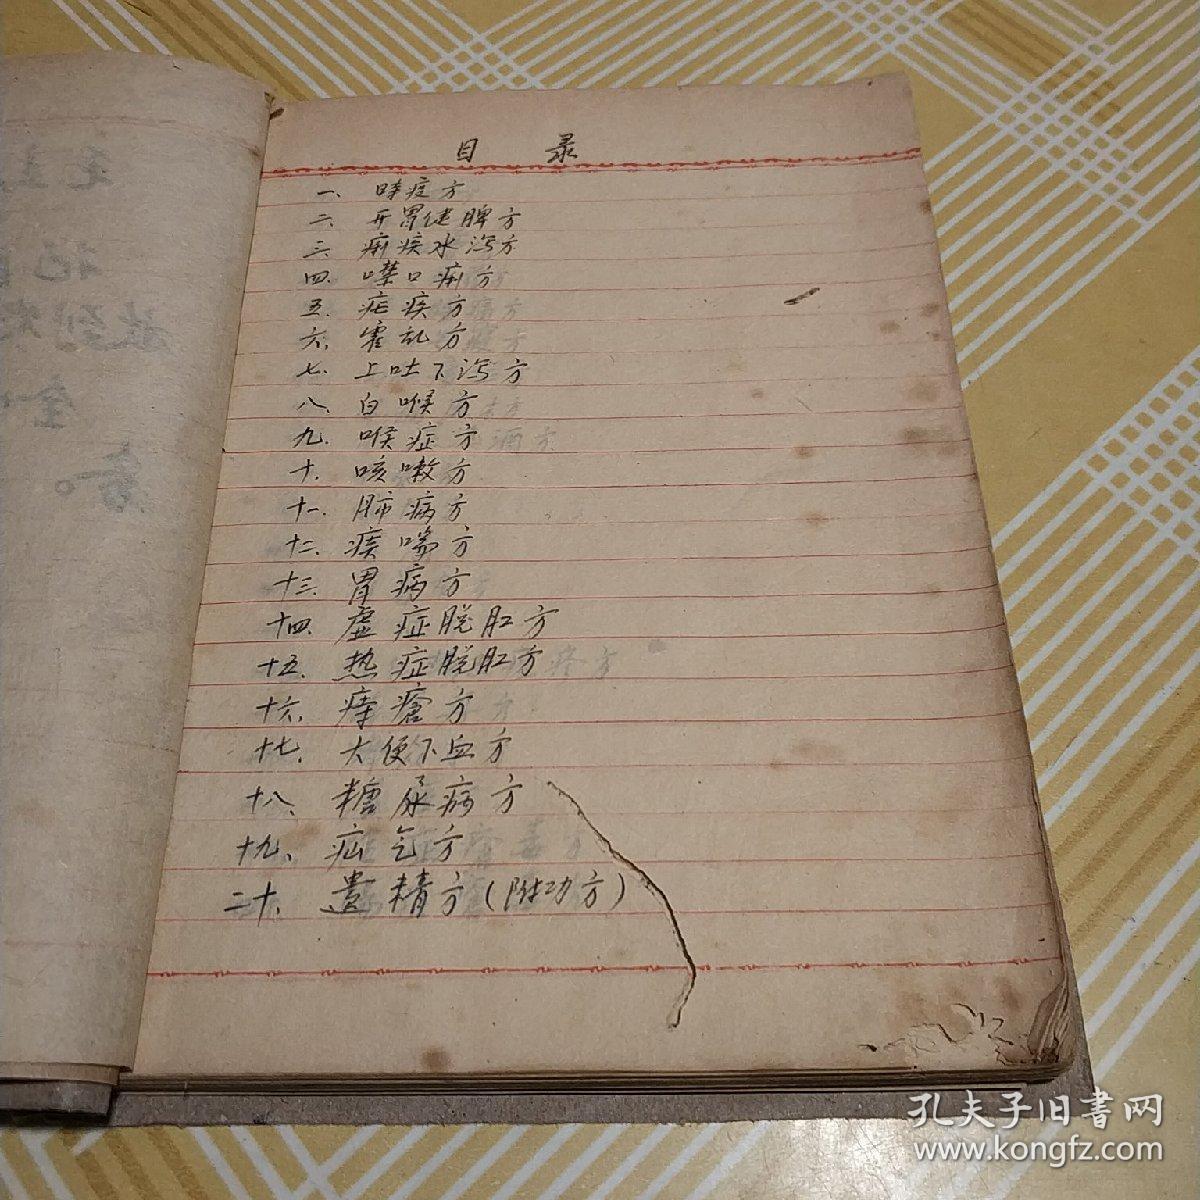 目录
一、时症方
二、开胃健脾方
三、痢疾水泻方
四、噤口痢方
五、疟疾方
六、霍乱方
七、上吐下泻方
八、白喉方
九、喉症方
十、咳嗽方
十一、肺病方
十二、痰喘方
十三、胃病方
十四、虚症脱肛方
十五、热症脱肛方
十六、痔疮方
十七、大便下血方
十八、糖尿病方
十九、疝气方
二十、遗精方(附功方)
孔夫子旧书网
www.kongfz.com